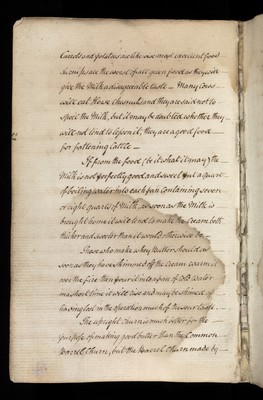 Carrots and potatoes are like wise most excellent food
Turnips are the worst of all green food as they will
give the Milk a disagreeable taste – Many Cows
will eat Horse Chesnuts and they are said not to
spoil the Milk, but it may be doubted whether they
will not tend to lessen it; they are a good food
for fattening Cattle –
If from the food (be it what it may) the
Milk is not perfectly good and sweet put a quart
of boiling water into each pan containing seven
or eight quarts of Milk, as soon as the Milk is
brought home it will tend to make the Cream both
thicker and sweeter than it would otherwise be –
Those who make whey butter should as
soon as they have skimmed off the cream
the fire then pour it into a pan of cold water
in a short time it will rise and may be skimed of
as long lost in the operation much of the sour taste.
The upright Churn is much better for the
purpose of making good butter than the Common
Barrel Churn, but the Barrel Churn made by